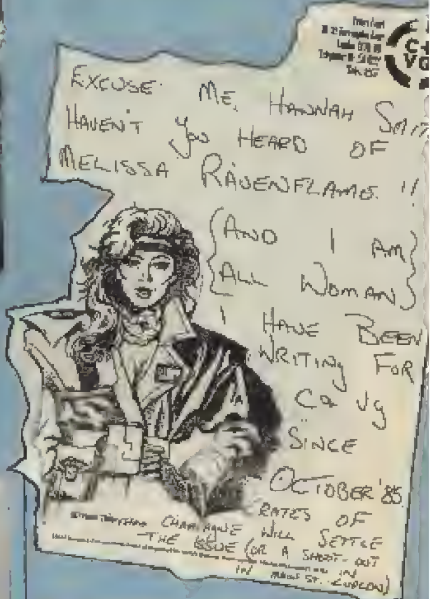 C+
VG
EXCUSE ME, HANNAH SMIT
HAVEN'T YOU HEARD OF
MELISSA RAVENFLAME !!
{AND I AM}
{ALL WOMAN}
I HAVE BEEN
WRITING FOR
C & VG
SINCE
OCTOBER '85
CRATES OF
CHAMPAGNE WILL SETTLE
THE ISSUE (OR A SHOOT-OUT
IN MAIN ST. LUDLOW)